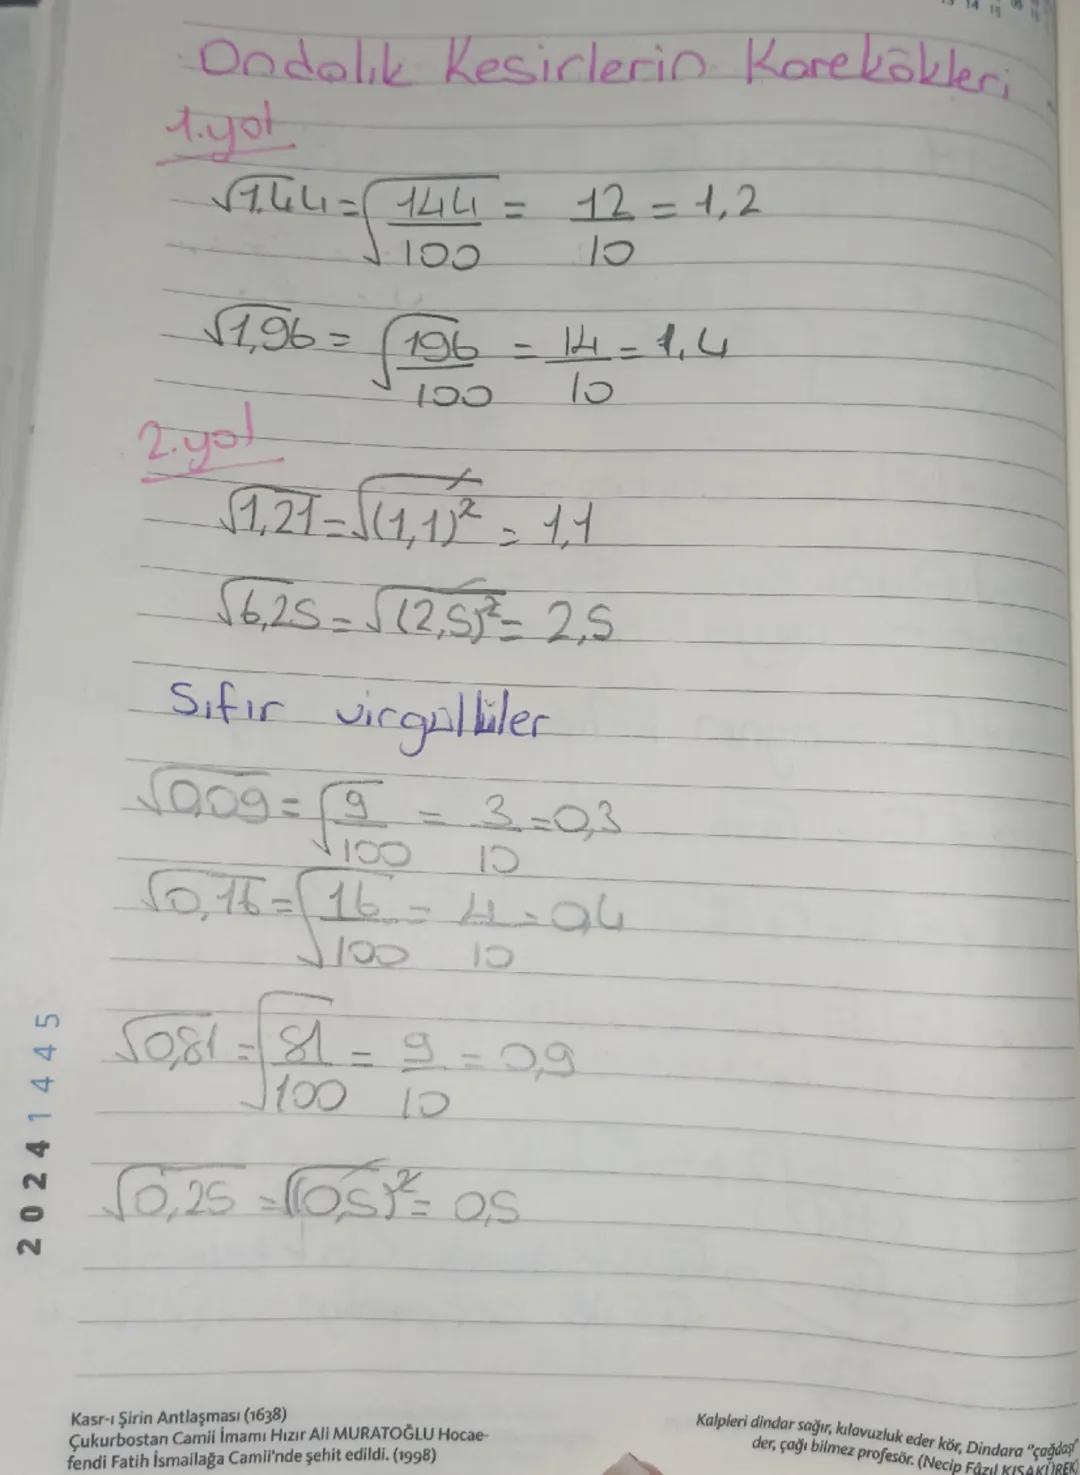 14 15
Ondalık Kesirlerin Karekökleri
1.yol
√1.44 = √144/100 = 12/10 = 1,2
√1,96 = √196/100 = 14/10 = 1,4
2.yol
√1,21 = √(1,1)² = 1,1
√6,25 = √(2,5)² = 2,5
Sıfır virgüllüler
√0,09 = √9/100 = 3/10 = 0,3
√0,16 = √16/100 = 4/10 = 0,4
√0,81 = √81/100 = 9/10 = 0,9
√0,25 = √(0,5)² = 0,5
2024 1445
Kasr-ı Şirin Antlaşması (1638)
Çukurbostan Camii İmamı Hızır Ali MURATOĞLU Hocae-
fendi Fatih İsmailağa Camii'nde şehit edildi. (1998)
Kalpleri dindar sağır, kılavuzluk eder kör, Dindara "çağdaşı"
der, çağı bilmez profesör. (Necip Fâzıl KISAKÜREK)